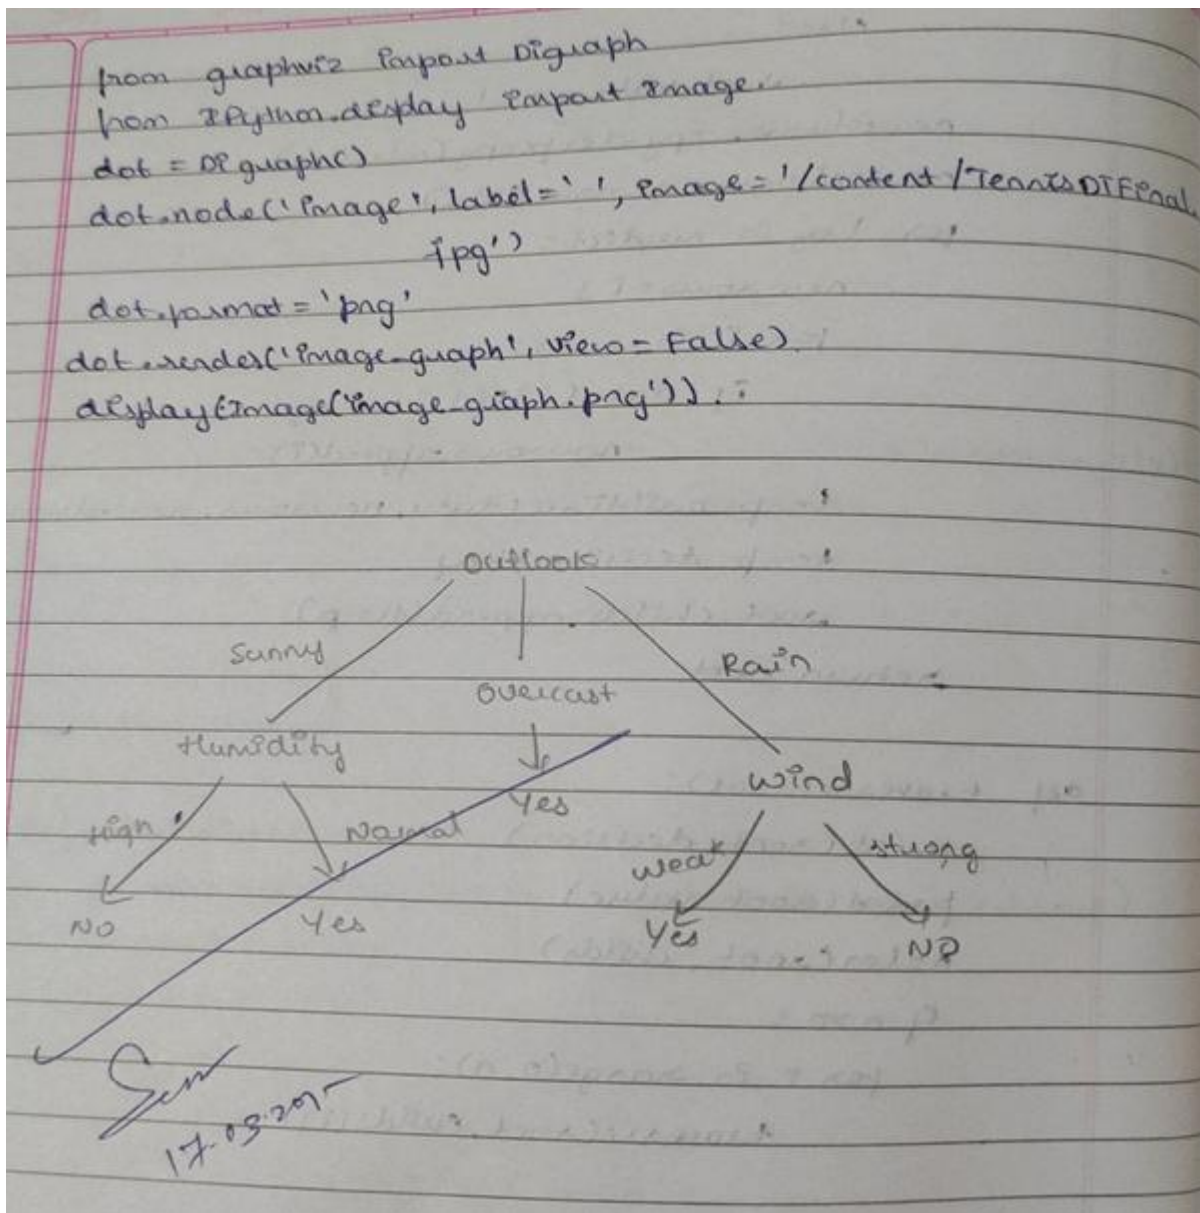 from graphviz import Digraph
from IPython.display import Image.
dot = Digraph()
dot.node('image', label=' ', image='/content/TennisDTFinal.
jpg')
dot.format = 'png'
dot.render('image_graph', view = False)
display(Image('image_graph.png')).
Outlook
Sunny
Rain
Overcast
Humidity
Wind
Yes
High
Normal
Weak
strong
NO
Yes
Yes
NO